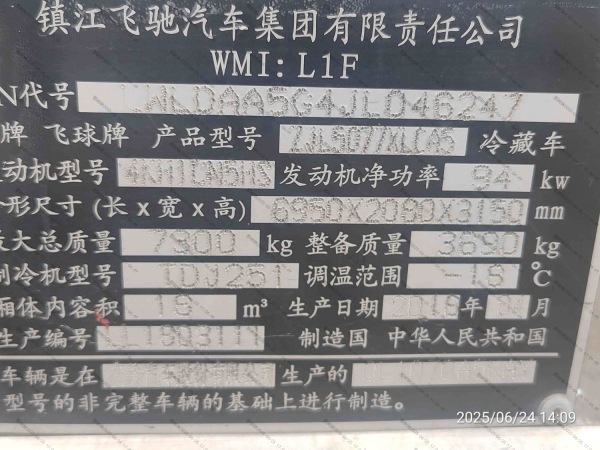 镇江飞驰汽车集团有限责任公司
WMI: L1F
N代号 LWLDAA5G4JL046247
牌 飞球牌 产品型号 ZJL5077XLCA5 冷藏车
动机型号 发动机净功率 94 kw
形尺寸 (长x宽x高) 6950X2090X3150 mm
大总质量 7300 kg 整备质量 3690 kg
制冷机型号 调温范围 -15 ℃
厢体内容积 16 m³ 生产日期 2018 年 月
生产编号 制造国 中华人民共和国
车辆是在 生产的
型号的非完整车辆的基础上进行制造。
2025/06/24 14:09